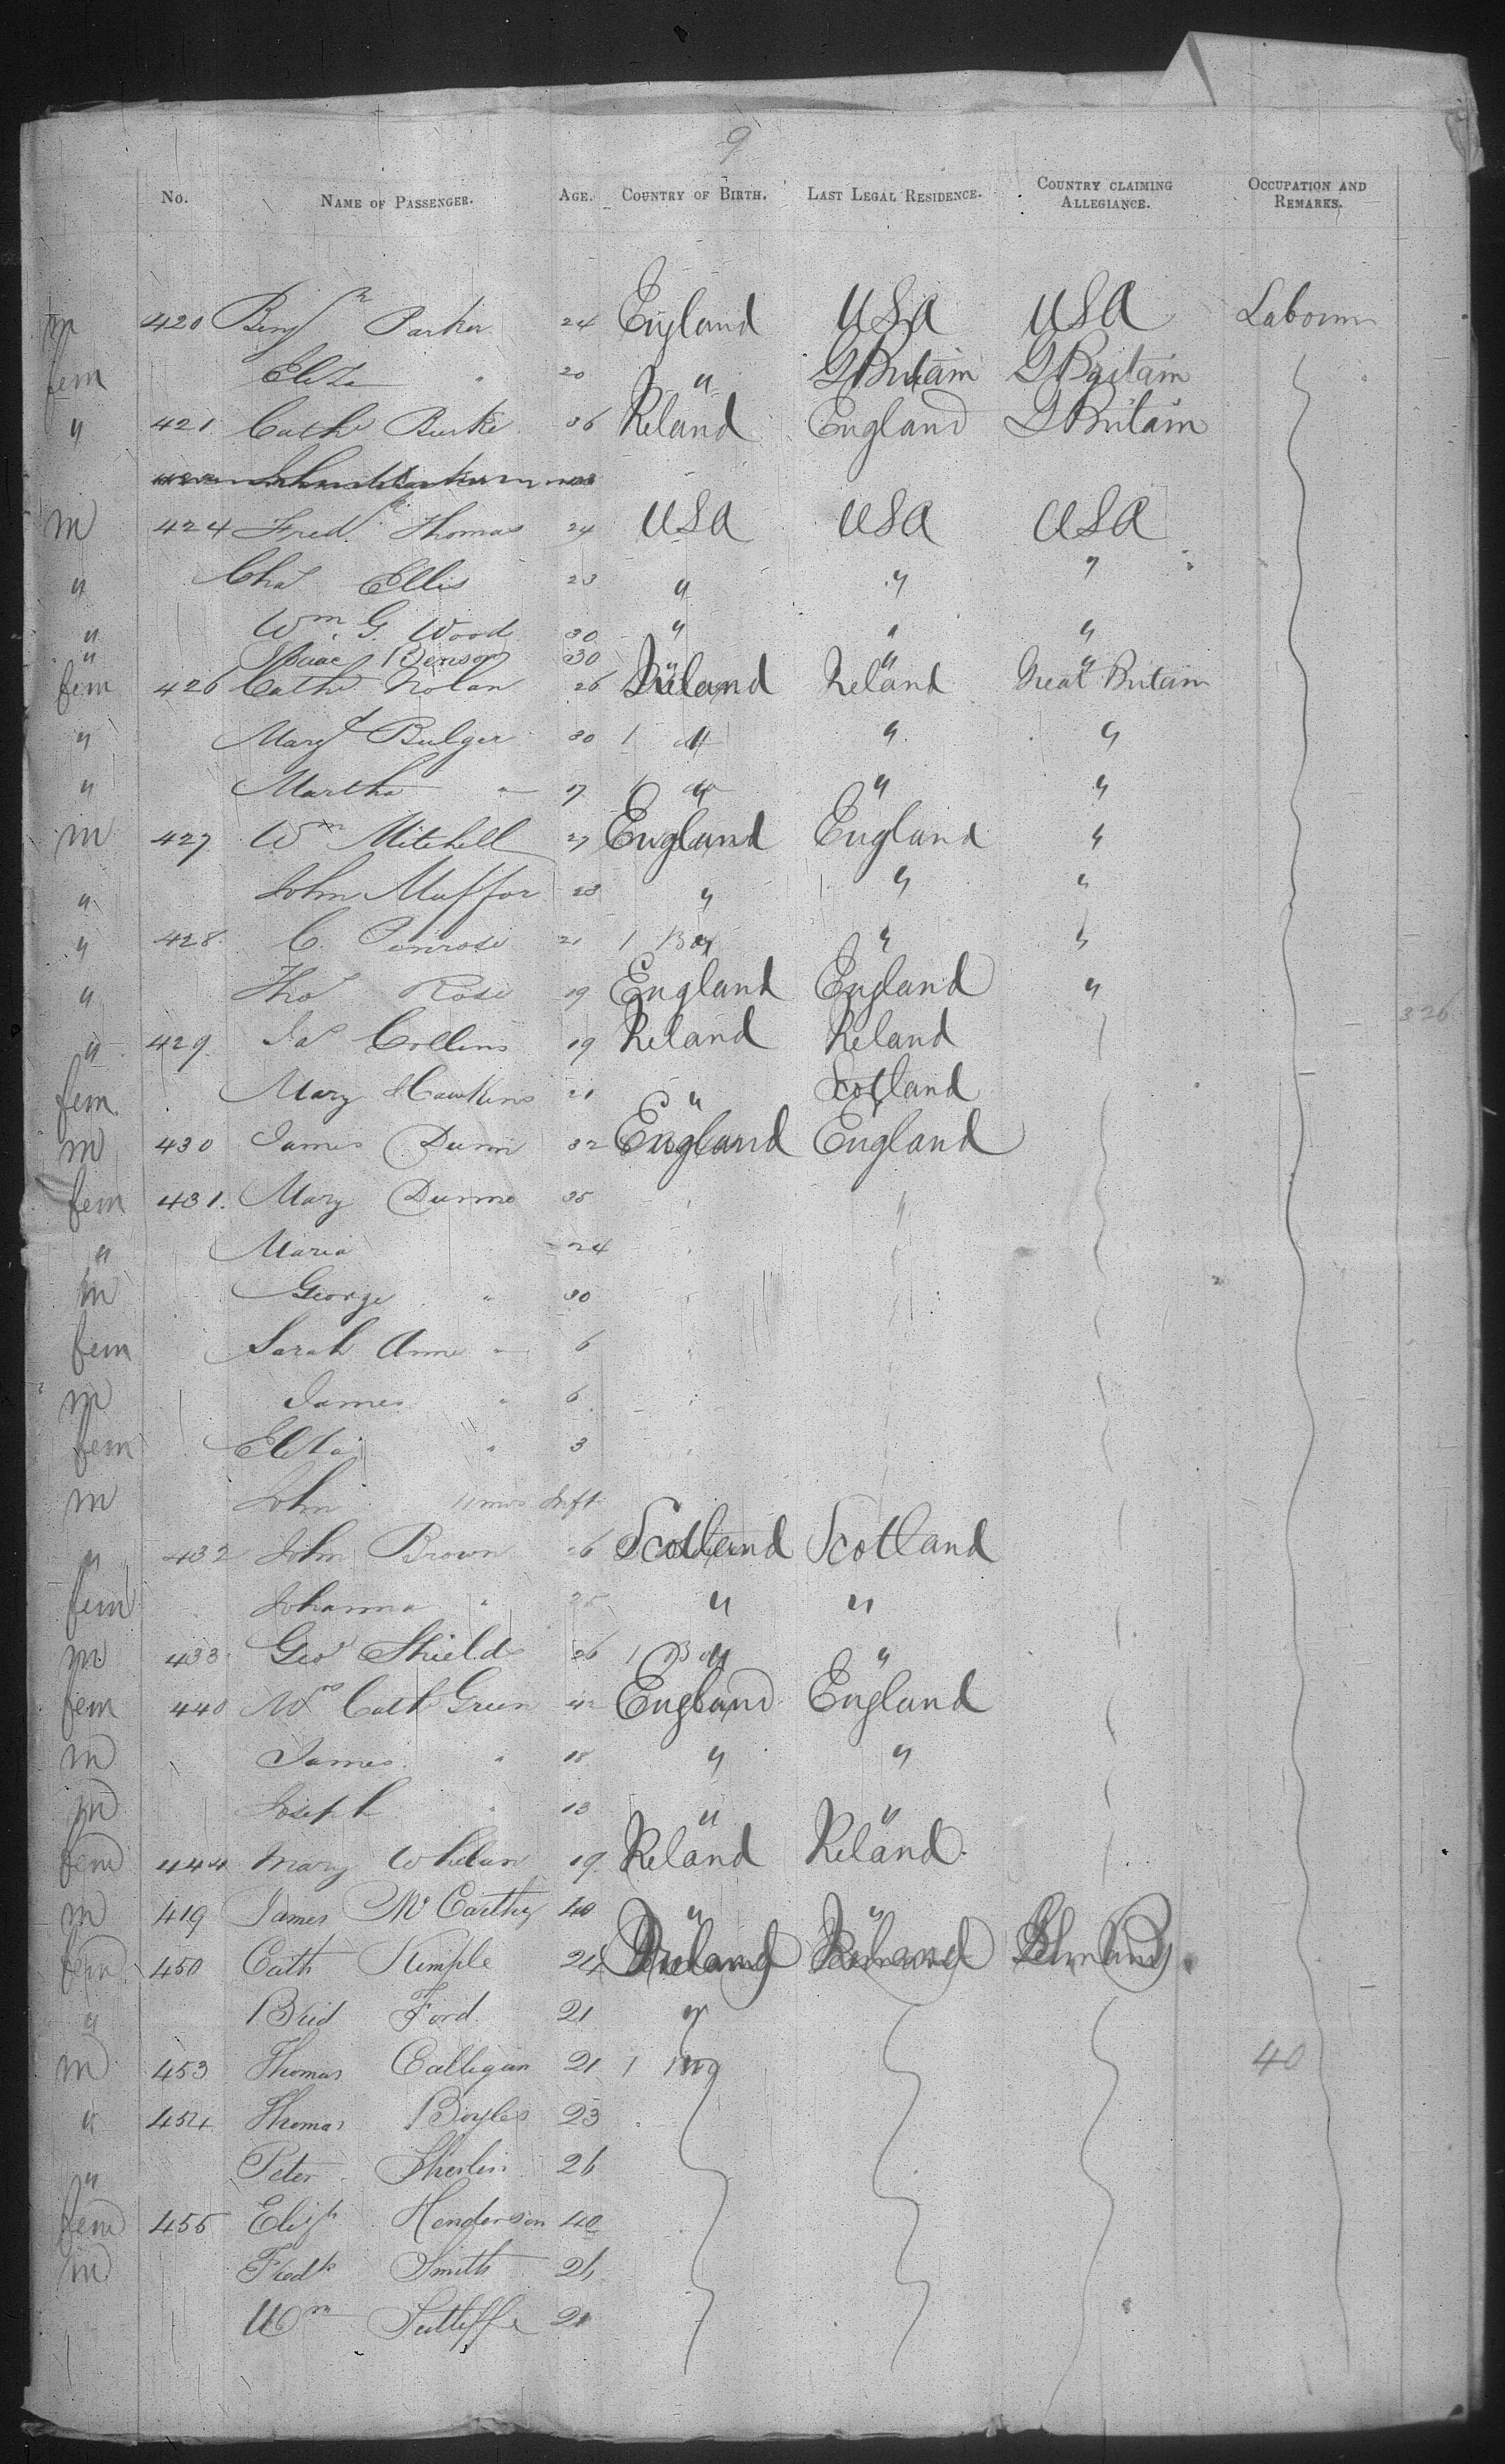 9
No. NAME OF PASSENGER. AGE. COUNTRY OF BIRTH. LAST LEGAL RESIDENCE. COUNTRY CLAIMING ALLEGIANCE. OCCUPATION AND REMARKS.
m 420 Benjn Parker 24 England USA USA
fem Eliza " 20 " G Britain G Britain
" 421 Cathe Burke 36 Ireland England G Britain
m 424 Fredk Thomas 24 USA USA USA
" Chas Ellis 23 " " "
" Wm G. Wood 30 " " "
" Isaac Benson 30 " " "
fem 426 Cathe Nolan 26 Ireland Ireland Great Britain
" Mary Bulger 30 1 " " "
" Martha " 7 " " "
m 427 Wm Mitchell 27 England England "
" John Muffor 23 " " "
" 428 C. Penrose 21 1 Box " "
" Thos Rose 19 England England "
" 429 Jas Collins 19 Ireland Ireland
326
fem Mary Hawkins 21 " Scotland
m 430 James Dunn 32 England England
fem 431. Mary Dunne 35 "
" Maria 24
m George " 30
fem Sarah Anne " 6
m James " 6
fem Eliza " 3
m John 11 mos Inft
" 432 John Brown 26 Scotland Scotland
fem Johanna " 25 " "
m 433 Geo Shields 26 1 Box "
fem 440 Mrs Cath Green 42 England England
m James " 18 " "
m Joseph " 13 " "
fem 444 Mary Whelan 19 Ireland Ireland
m 419 James McCarthy 40 " "
fem 450 Cath Kemple 24 Ireland Ireland
" Brid Ford 21 "
m 453 Thomas Calligan 21 1 40
" 454 Thomas Boyles 23
" Peter 26
fem 455 Elizh Henderson 40
m Fredk Smith 26
Wm Sutliffe 21